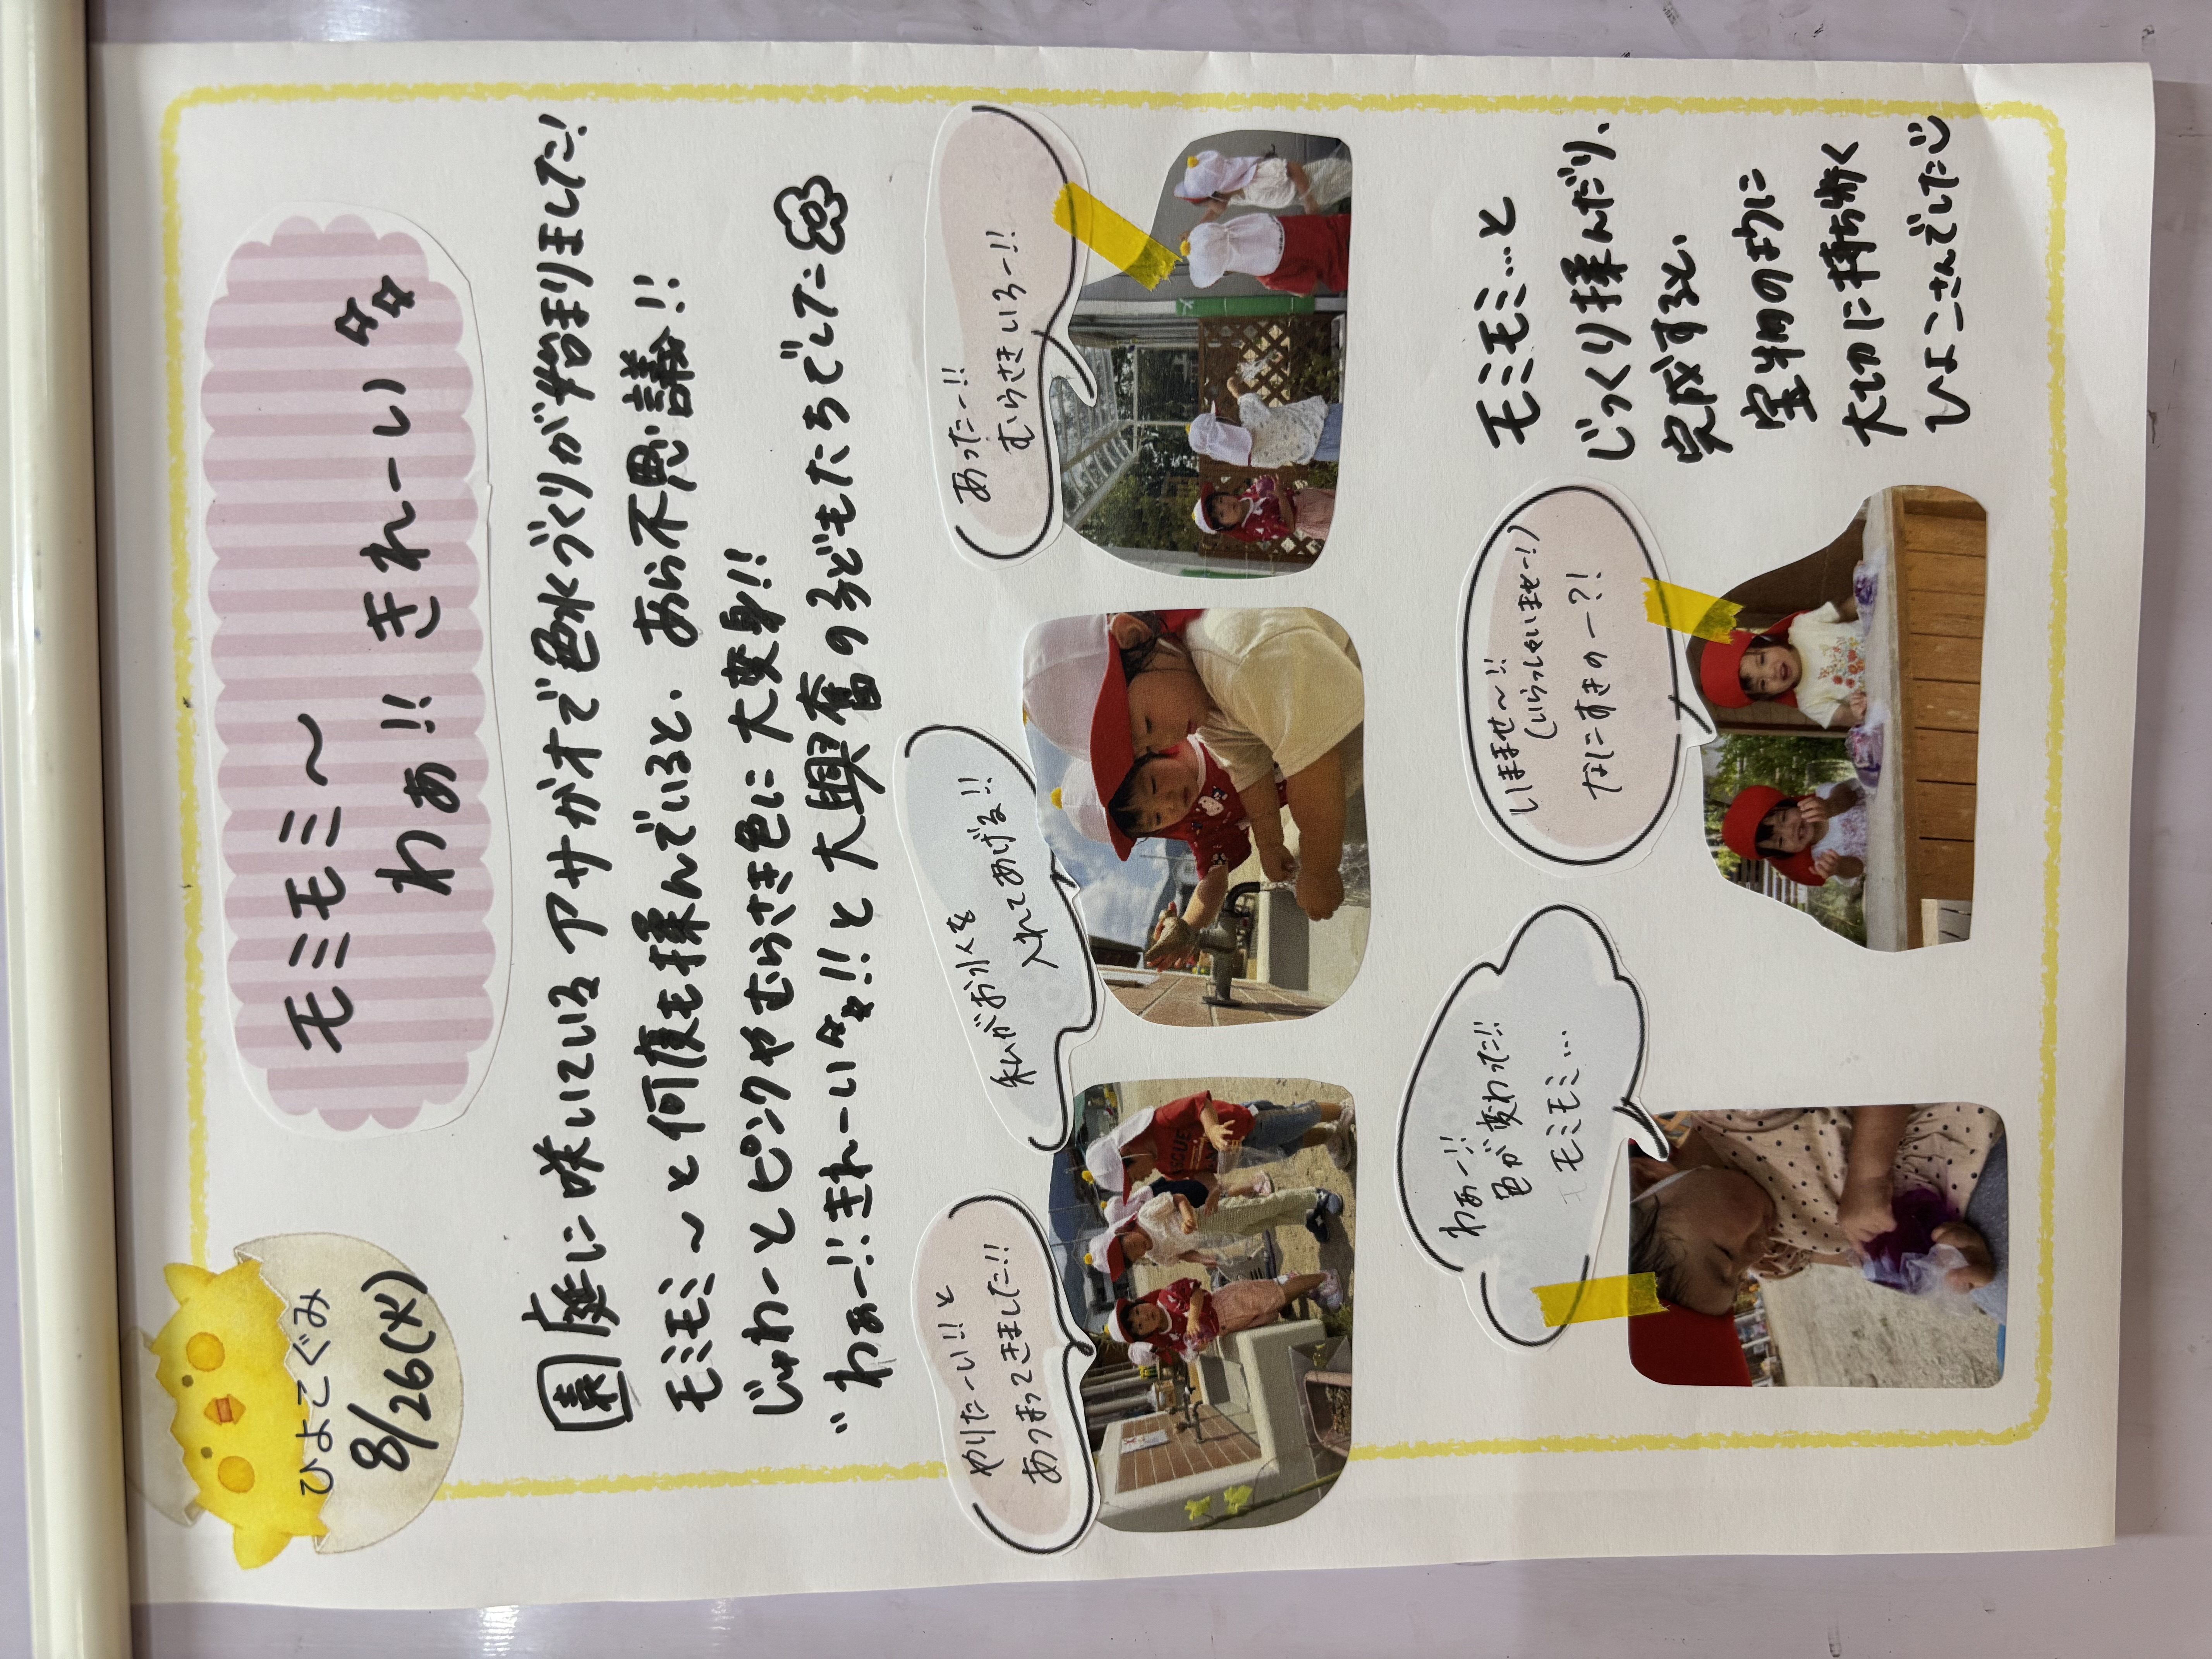 ひよこぐみ
8/26(火)
モミモミ〜
わぁ!! きれーい☆☆
園庭に咲いている アサガオで色水づくりが始まりました!
モミモミ〜と何度も揉んでいると、あら不思議!!
じゅわーとピンクやむらさき色に大変身!!
"わぁー!!きれーい☆☆!!と大興奮の子どもたちでした
やりたーい!!と
あつまってきました!!
私がお水を
入れてあげる!!
あったー!!
むらさきいろー!!
わぁー!!
色が変わった!!
モミモミ...
いませませ〜!!
(いらっしゃいませー!)
なにすきのー?!
モミモミ...と
じっくり揉んだり、
完成すると、
宝物のように
大切に持ち歩く
ひよこさんでした